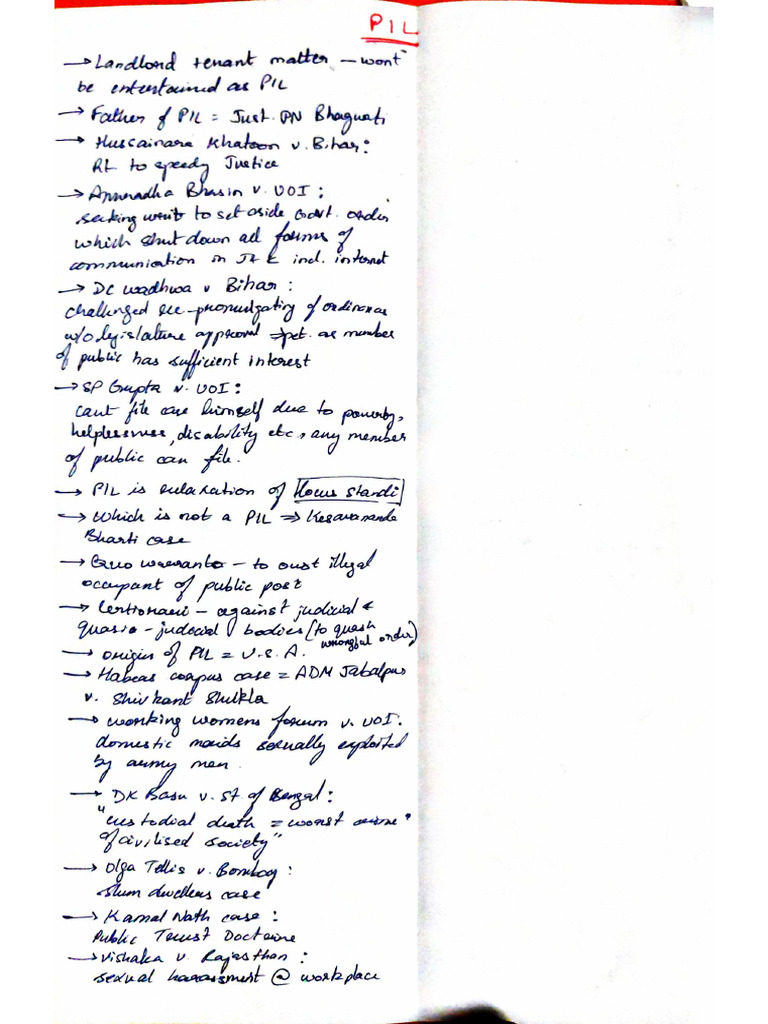 PIL
→ Landlord tenant matter – wont
be entertained as PIL
→ Father of PIL = Just. PN Bhagwati
→ Huscainara Khatoon v. Bihar:
Rt to speedy Justice
→ Annuradha Bhasin v. UOI:
seeking writ to set aside Govt. order
which shut down all forms of
communication in J & K incl. internet
→ DC Wadhwa v Bihar:
challenged re-promulgating of ordinances
w/o legislature approval ⇒ pet. as member
of public has sufficient interest
→ SP Gupta v. UOI:
cant file case himself due to poverty,
helplessness, disability etc, any member
of public can file.
→ PIL is relaxation of Locus Standi
→ Which is not a PIL ⇒ Kesavananda
Bharti case
→ Quo warranto – to oust illegal
occupant of public post
→ Certiorari – against judicial &
quasi-judicial bodies (to quash
wrongful order)
→ origin of PIL = U.S.A.
→ Habeas corpus case = ADM Jabalpur
v. Shivkant Shukla
→ working womens forum v. UOI.
domestic maids sexually exploited
by army men.
→ DK Basu v. St. of Bengal:
"custodial death = worst crime
of civilised society"
→ Olga Tellis v. Bombay:
slum dwellers case
→ Kamal Nath case:
Public Trust Doctrine
→ Vishaka v. Rajasthan:
sexual harassment @ workplace